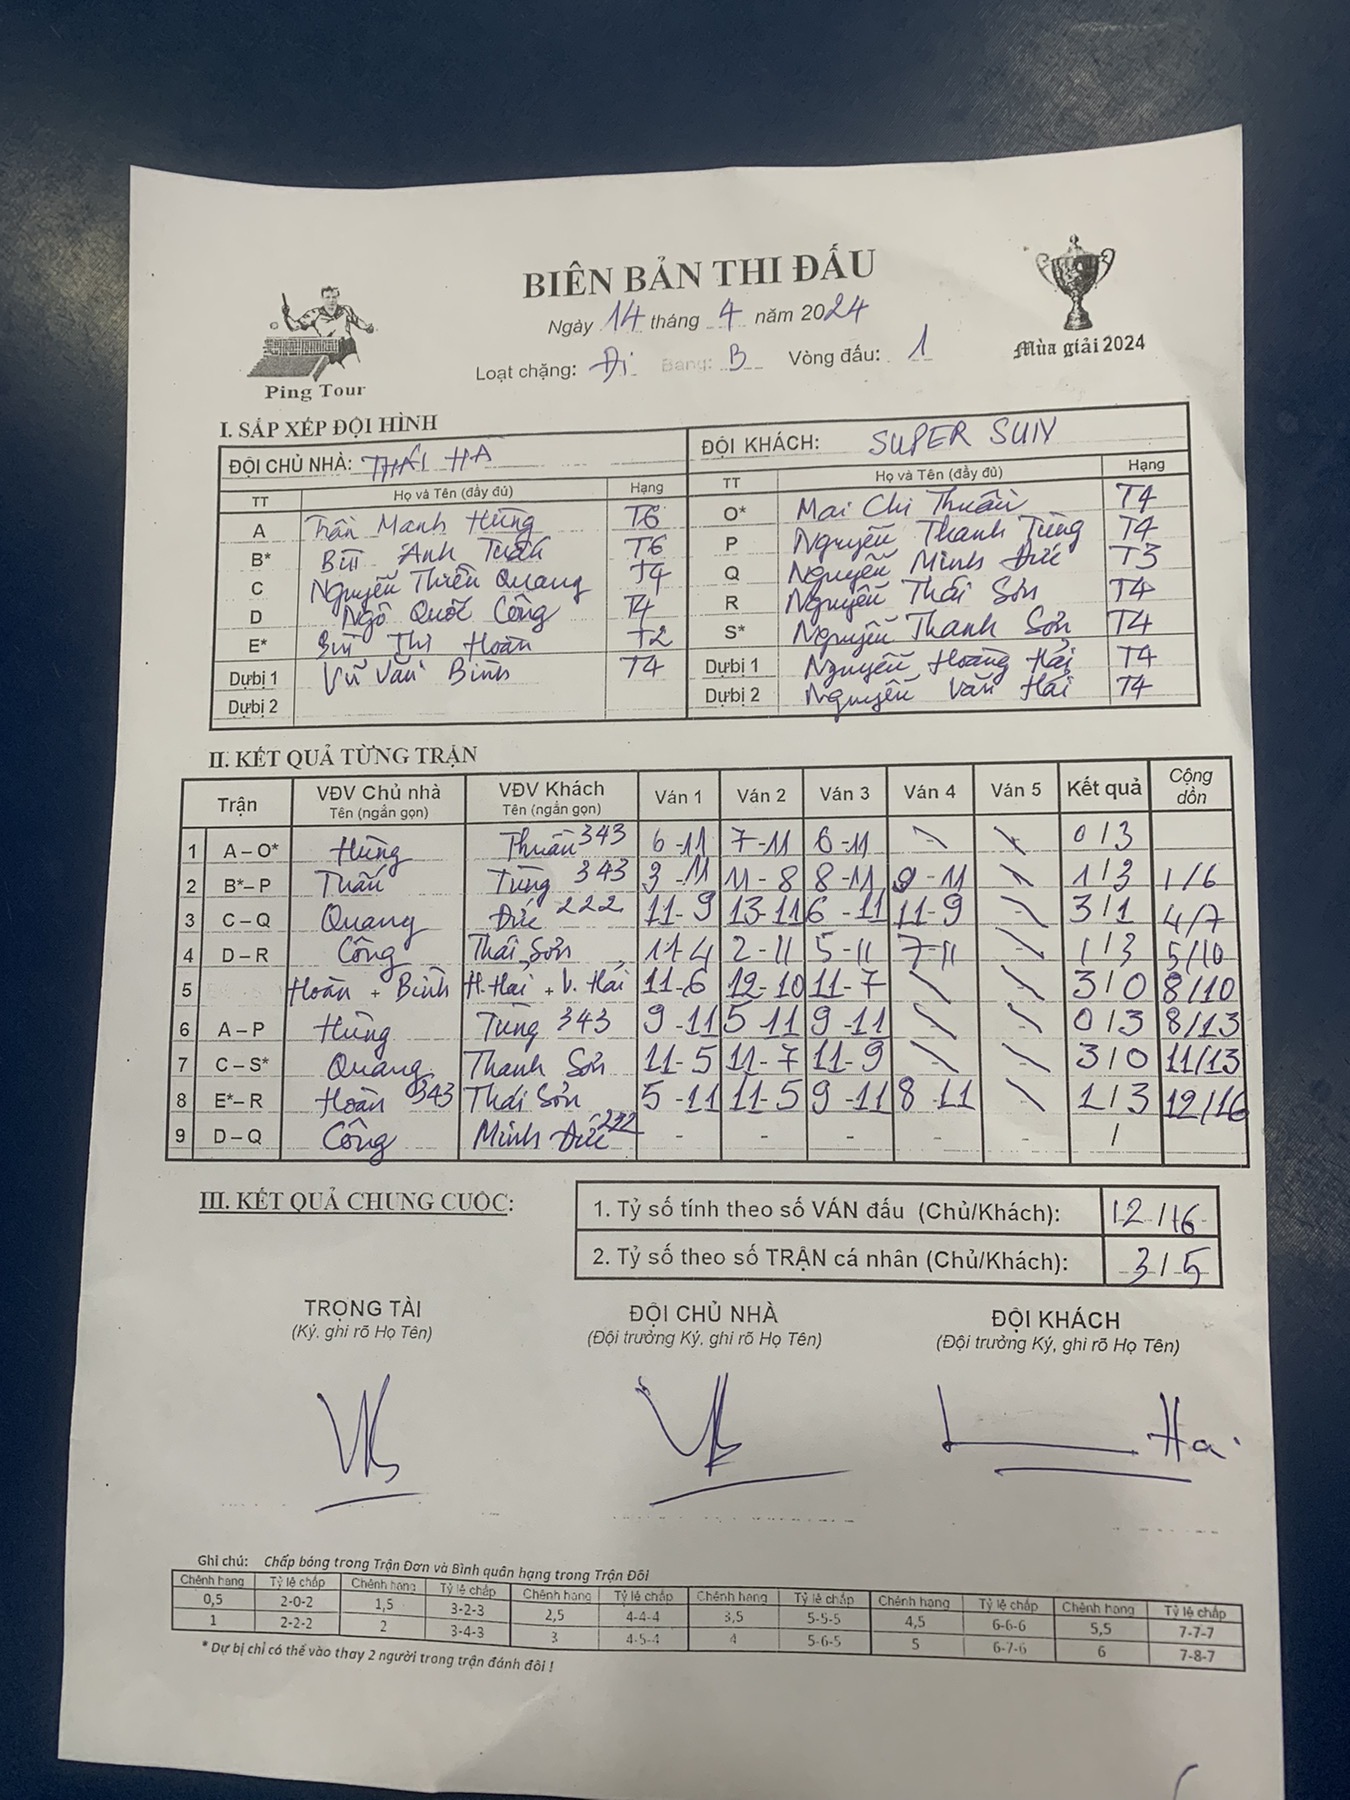 BIÊN BẢN THI ĐẤU
Ngày 14 tháng 4 năm 2024
Loạt chặng: Đi Bảng: B Vòng đấu: 1
Ping Tour
Mùa giải 2024
I. SẮP XẾP ĐỘI HÌNH
ĐỘI CHỦ NHÀ: THÁI HÀ ĐỘI KHÁCH: SUPER SUN
TT Họ và Tên (đầy đủ) Hạng TT Họ và Tên (đầy đủ) Hạng
A Trần Mạnh Hùng T6 O* Mai Chi Thuần T4
B* Bùi Anh Tuấn T6 P Nguyễn Thanh Tùng T4
C Nguyễn Thiên Quang T4 Q Nguyễn Minh Đức T3
D Ngô Quốc Công T4 R Nguyễn Thái Sơn T4
E* Bùi Thị Hoàn T2 S* Nguyễn Thanh Sơn T4
Dựbị 1 Vũ Văn Bình T4 Dựbị 1 Nguyễn Hoàng Hải T4
Dựbị 2 Dựbị 2 Nguyễn Văn Hải T4
II. KẾT QUẢ TỪNG TRẬN
Trận VĐV Chủ nhà VĐV Khách Ván 1 Ván 2 Ván 3 Ván 4 Ván 5 Kết quả Cộng dồn
Tên (ngắn gọn) Tên (ngắn gọn)
1 A – O* Hùng Thuần 343 6-11 7-11 6-11 0/3
2 B* – P Tuấn Tùng 343 3-11 11-8 8-11 9-11 1/3 1/6
3 C – Q Quang Đức 222 11-9 13-11 6-11 11-9 3/1 4/7
4 D – R Công Thái Sơn 11-4 2-11 5-11 7-11 1/3 5/10
5 Hoàn + Bình H. Hải + V. Hải 11-6 12-10 11-7 3/0 8/10
6 A – P Hùng Tùng 343 9-11 5-11 9-11 0/3 8/13
7 C – S* Quang Thanh Sơn 11-5 11-7 11-9 3/0 11/13
8 E* – R Hoàn 343 Thái Sơn 5-11 11-5 9-11 8-11 1/3 12/16
9 D – Q Công Minh Đức 222 - - - - - /
III. KẾT QUẢ CHUNG CUỘC:
1. Tỷ số tính theo số VÁN đấu (Chủ/Khách): 12/16
2. Tỷ số theo số TRẬN cá nhân (Chủ/Khách): 3/5
TRỌNG TÀI ĐỘI CHỦ NHÀ ĐỘI KHÁCH
(Ký, ghi rõ Họ Tên) (Đội trưởng Ký, ghi rõ Họ Tên) (Đội trưởng Ký, ghi rõ Họ Tên)
Hai
Ghi chú: Chấp bóng trong Trận Đơn và Bình quân hạng trong Trận Đôi
Chênh hạng Tỷ lệ chấp Chênh hạng Tỷ lệ chấp Chênh hạng Tỷ lệ chấp Chênh hạng Tỷ lệ chấp Chênh hạng Tỷ lệ chấp Chênh hạng Tỷ lệ chấp
0,5 2-0-2 1,5 3-2-3 2,5 4-4-4 3,5 5-5-5 4,5 6-6-6 5,5 7-7-7
1 2-2-2 2 3-4-3 3 4-5-4 4 5-6-5 5 6-7-6 6 7-8-7
* Dự bị chỉ có thể vào thay 2 người trong trận đánh đôi !